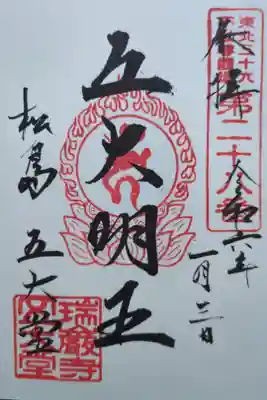 奉拝
東北三十六
不動尊霊場
第二十八番
令和六年
一月三日
五大明王
松島 五大堂
瑞巌寺
五大堂